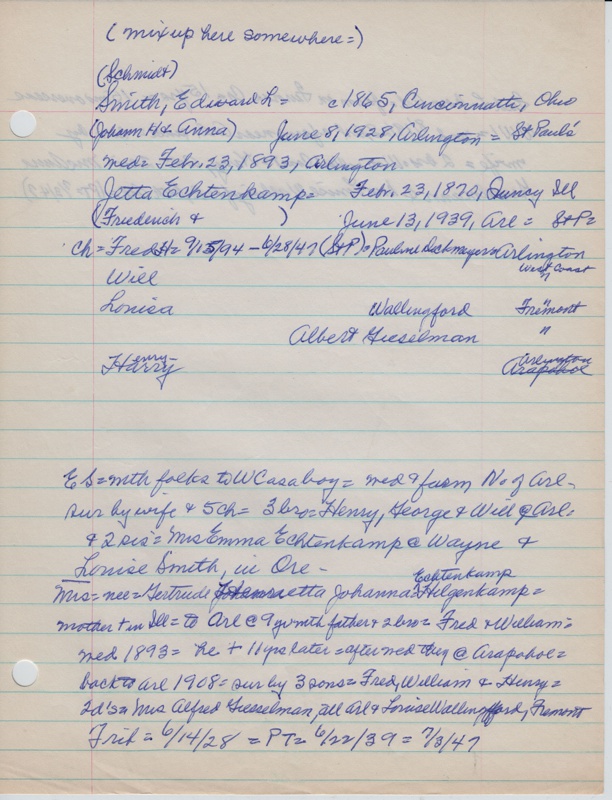 (mixup here somewhere=)
(Schmidt)
Smith, Edward L= c1865, Cincinnatti, Ohio
(Johann H & Anna) June 8, 1928, Arlington = St Paul's
med= Febr. 23, 1893, Arlington
Jetta Echtenkamp= Febr. 23, 1870, Quncy Ill
(Friederich & ) June 13, 1939, Arl = St P=
Ch= Fred H= 9/15/94 - 6/28/47 (St P)= Pauline Dickmeyer= Arlington
Will West Coast
Louisa Wallingford Fremont
Albert Gieselman "
Henry
Harry Arlington
Arapahoe
ES= with folks to W C as a boy= med & farm No of Arl-
sur by wife & 5 ch= 3 bro= Henry, George & Will @ Arl-
& 2 sis= Mrs Emma Echtenkamp @ Wayne &
Louise Smith, in Ore-
Echtenkamp
Mrs= nee= Gertrude Henrietta Johanna Helgenkamp=
mother + in Ill= to Arl @ 9 yr with father & 2 bro= Fred & William=
med 1893= he + 11 yrs later= after med they @ Arapahoe=
back to Arl 1908= sur by 3 sons= Fred, William & Henry=
2 d's= Mrs Alfred Giesselman, all Arl & Louise Wallingford, Fremont
Trib= 6/14/28 = PT= 6/22/39 = 7/3/47